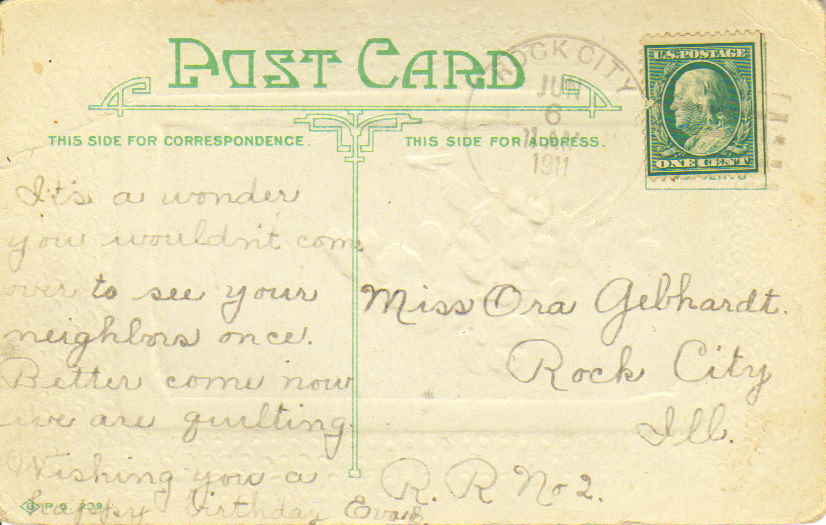 POST CARD
THIS SIDE FOR CORRESPONDENCE.
THIS SIDE FOR ADDRESS.
ROCK CITY
JUN
6
11 AM
1911
U.S. POSTAGE
ONE CENT
It's a wonder
you wouldn't come
over to see your
neighbors once.
Better come now
we are quilting.
Wishing you a
happy birthday
Miss Ora Gebhardt.
Rock City
Ill.
R. R No 2.
P.S. 239